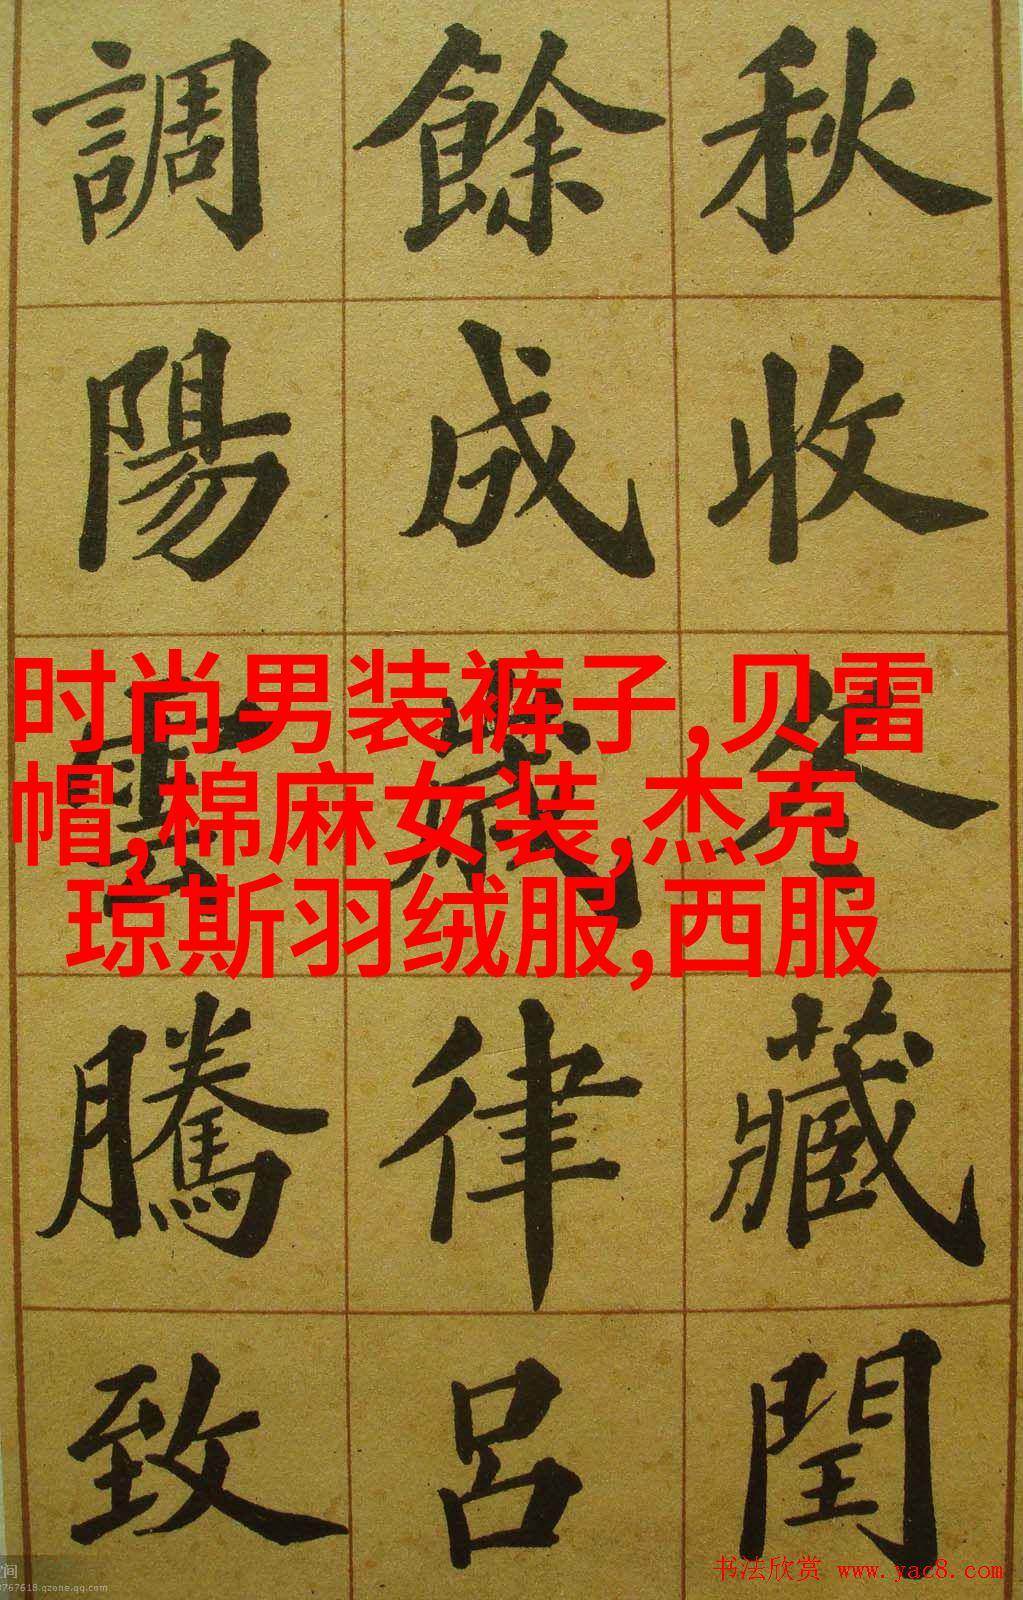 秋收冬藏閏
餘成歲律呂
調陽雲騰致
时尚男装裤子,贝雷
帽,棉麻女装,杰克
琼斯羽绒服,西服
书法欣赏 www.yac8.com
空间
3767618.qzone.qq.com